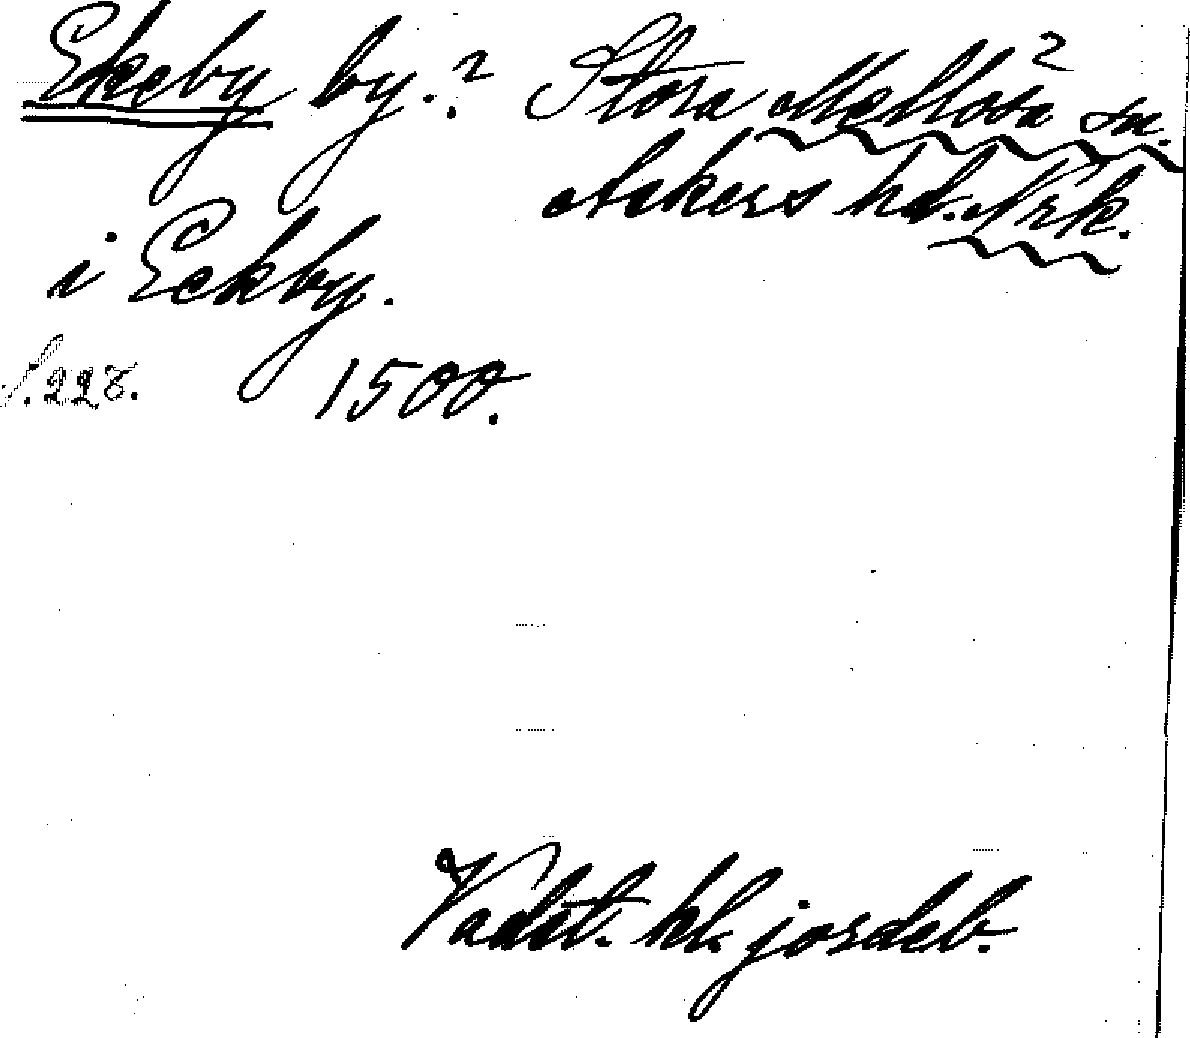 Ekeby by.? Stora Mellösa? sn.
Askers hd. Nrk.
i Eckby.
S. 228. 1500.
Vadst. kl. jordeb.